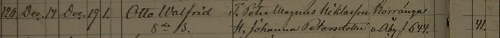 120. Dec. 14. Dec. 19. 1. Otto Walfrid F. Peter Magnus Niklasson Korrånga
M. Johanna Petersdotter 644. 41.